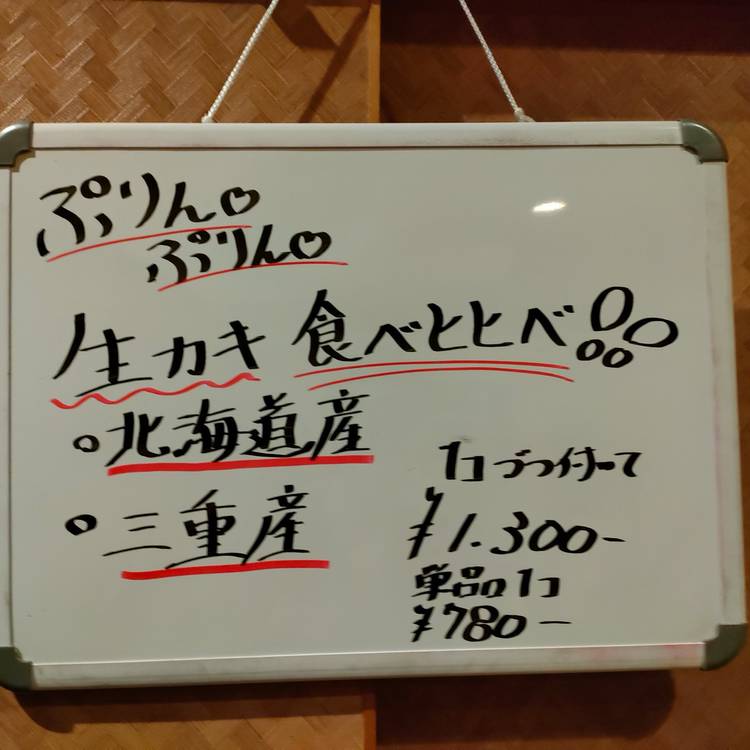 ぷりん♡
ぷりん♡
生カキ 食べヒヒベ
○北海道産
○三重産
1コづつ付いて
¥1.300-
単品1コ
¥780-